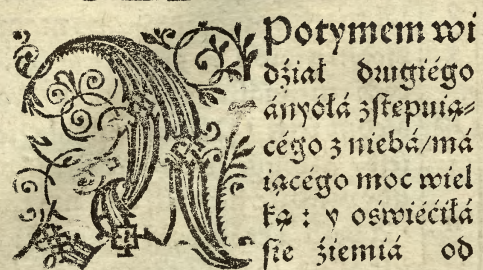 A Potymem wi
dźiał drugiégo
ányółá zstępuią⸗
cégo z niebá/má
iącégo moc wiel
ką : y oświéćiłá
sie źiemiá od